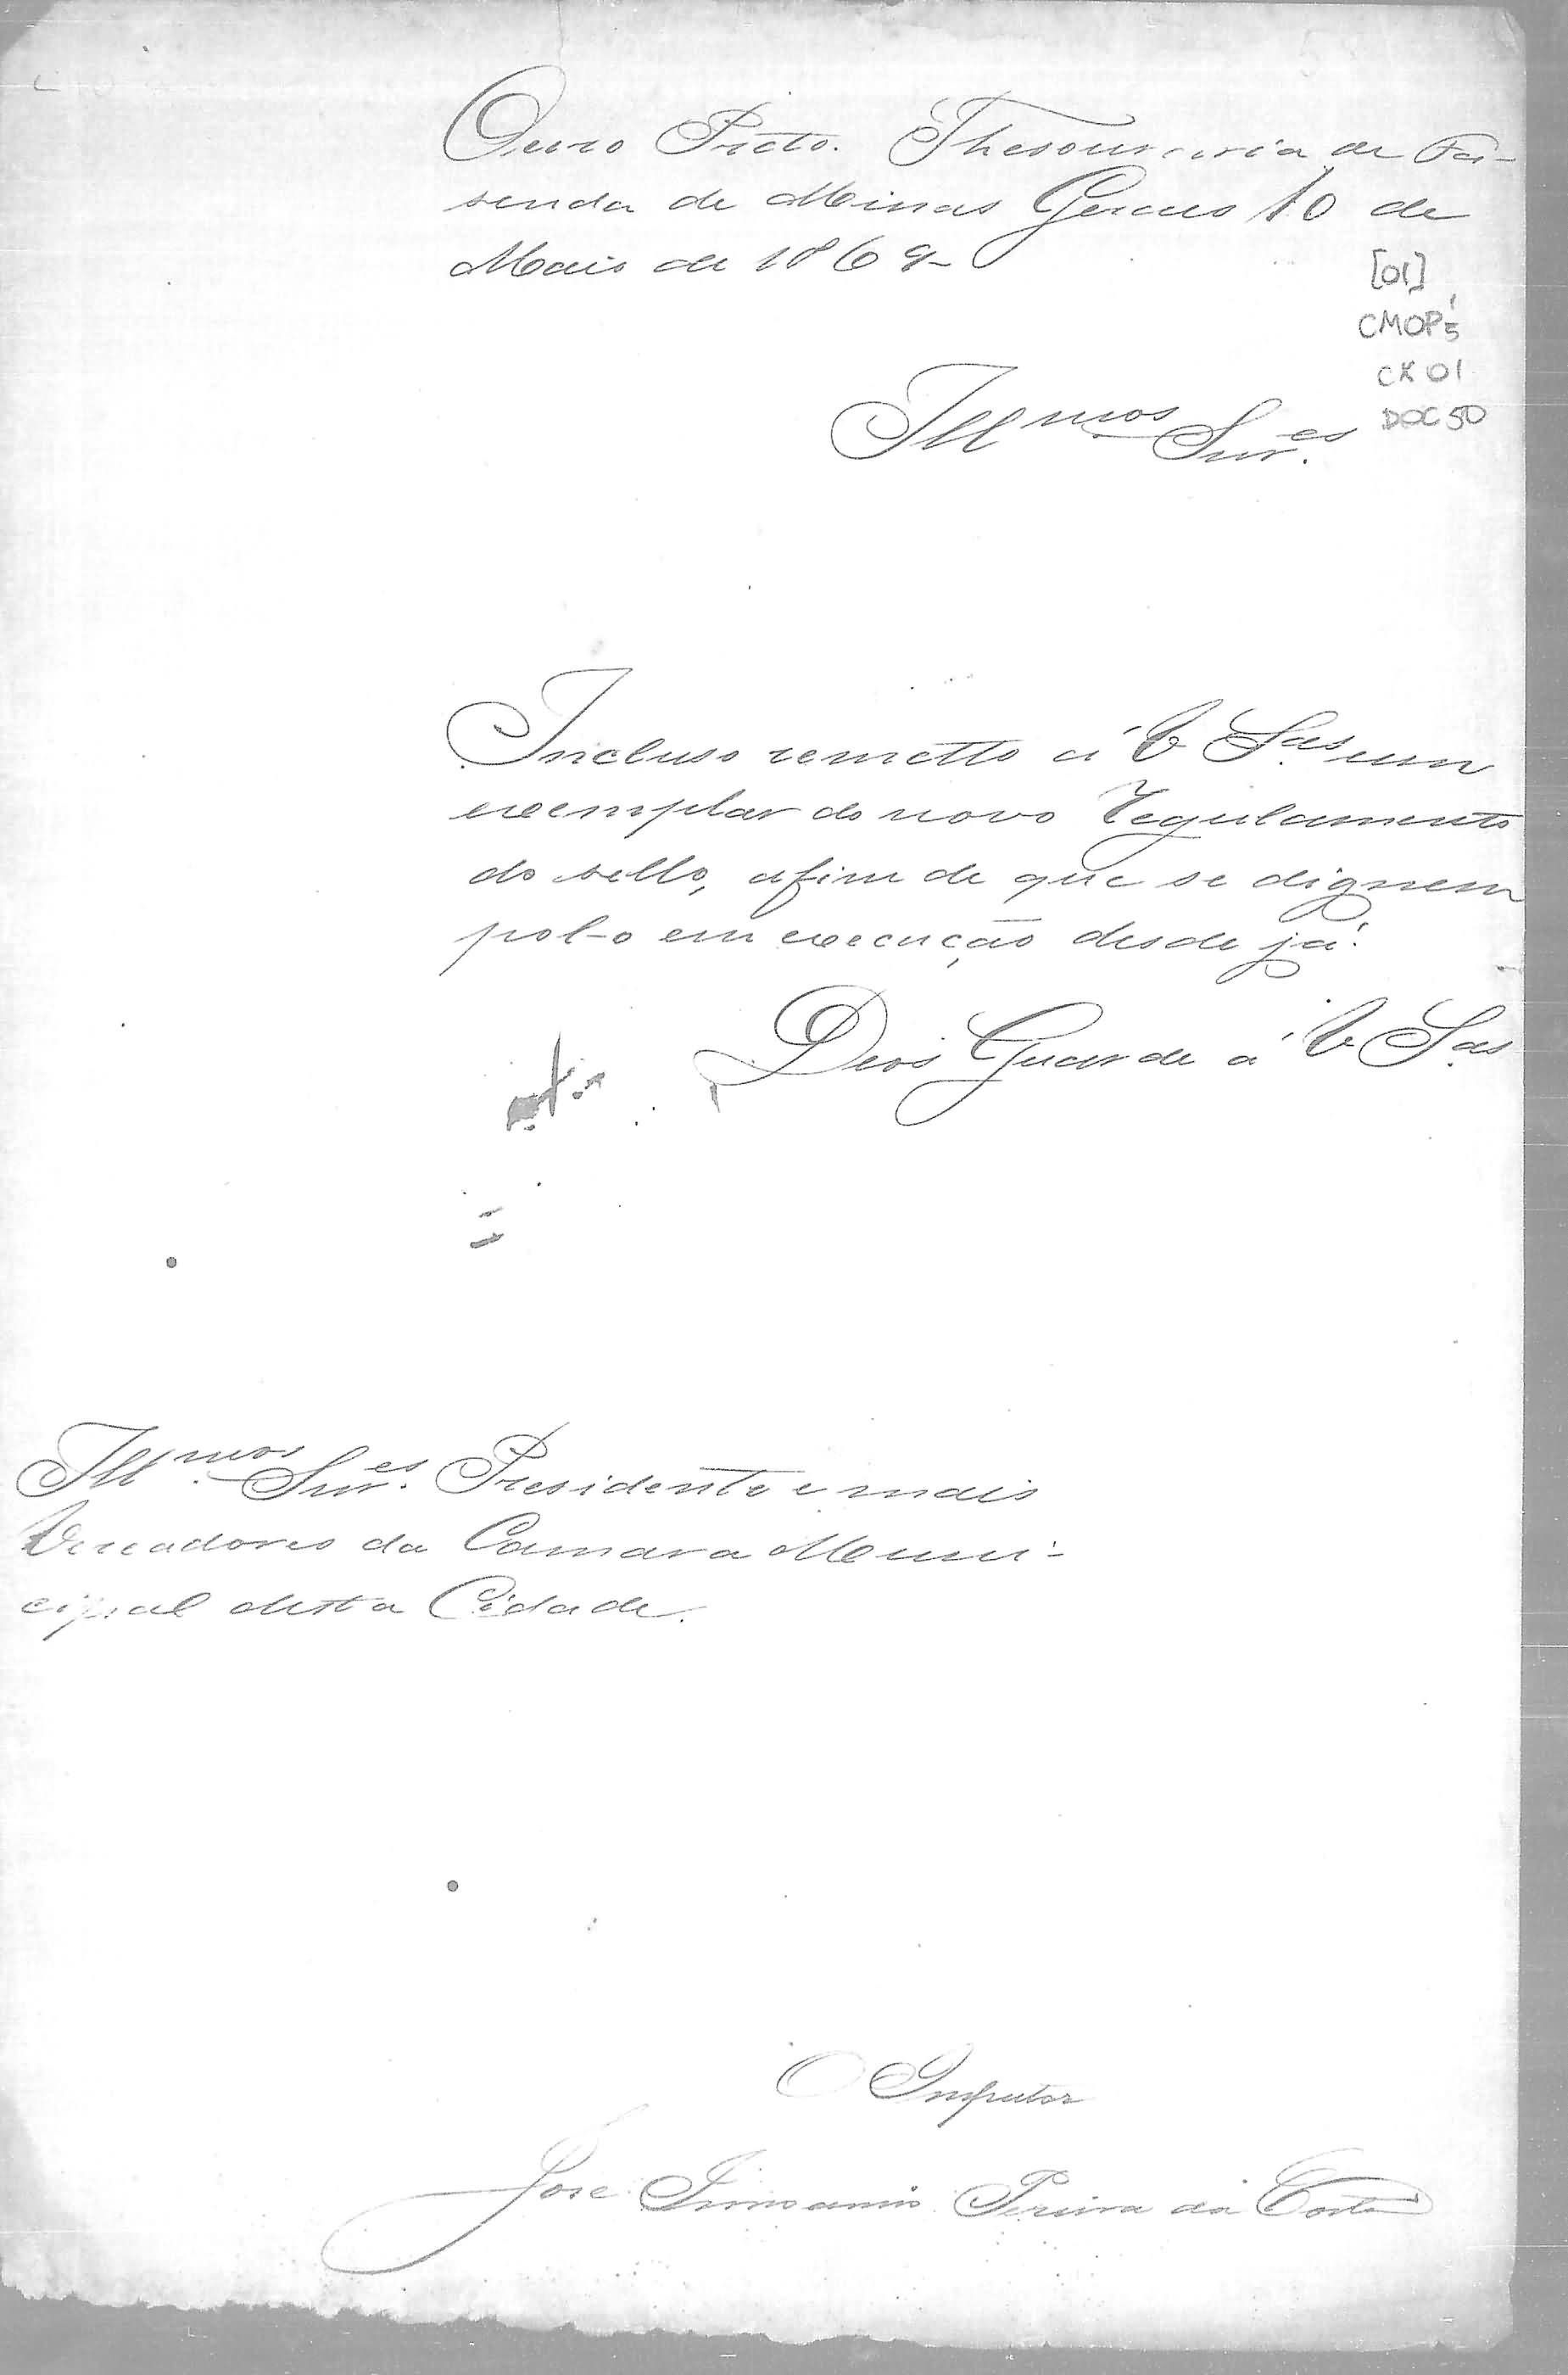 Ouro Preto. Thesouraria de Fa-
senda de Minas Geraes 10 de
Maio de 1869-
[01]
CMOP
CX 01
DOC 50
Illmos Snres.
Incluso remetto á V Sas um
exemplar do novo Regulamento
do sello, afim de que se dignem
pol-o em execução desde já.
Deos Guarde á V Sas
Illmos Snres. Presidente e mais
Vereadores da Camara Muni-
cipal desta Cidade.
O Inspector
José Pereira da Costa